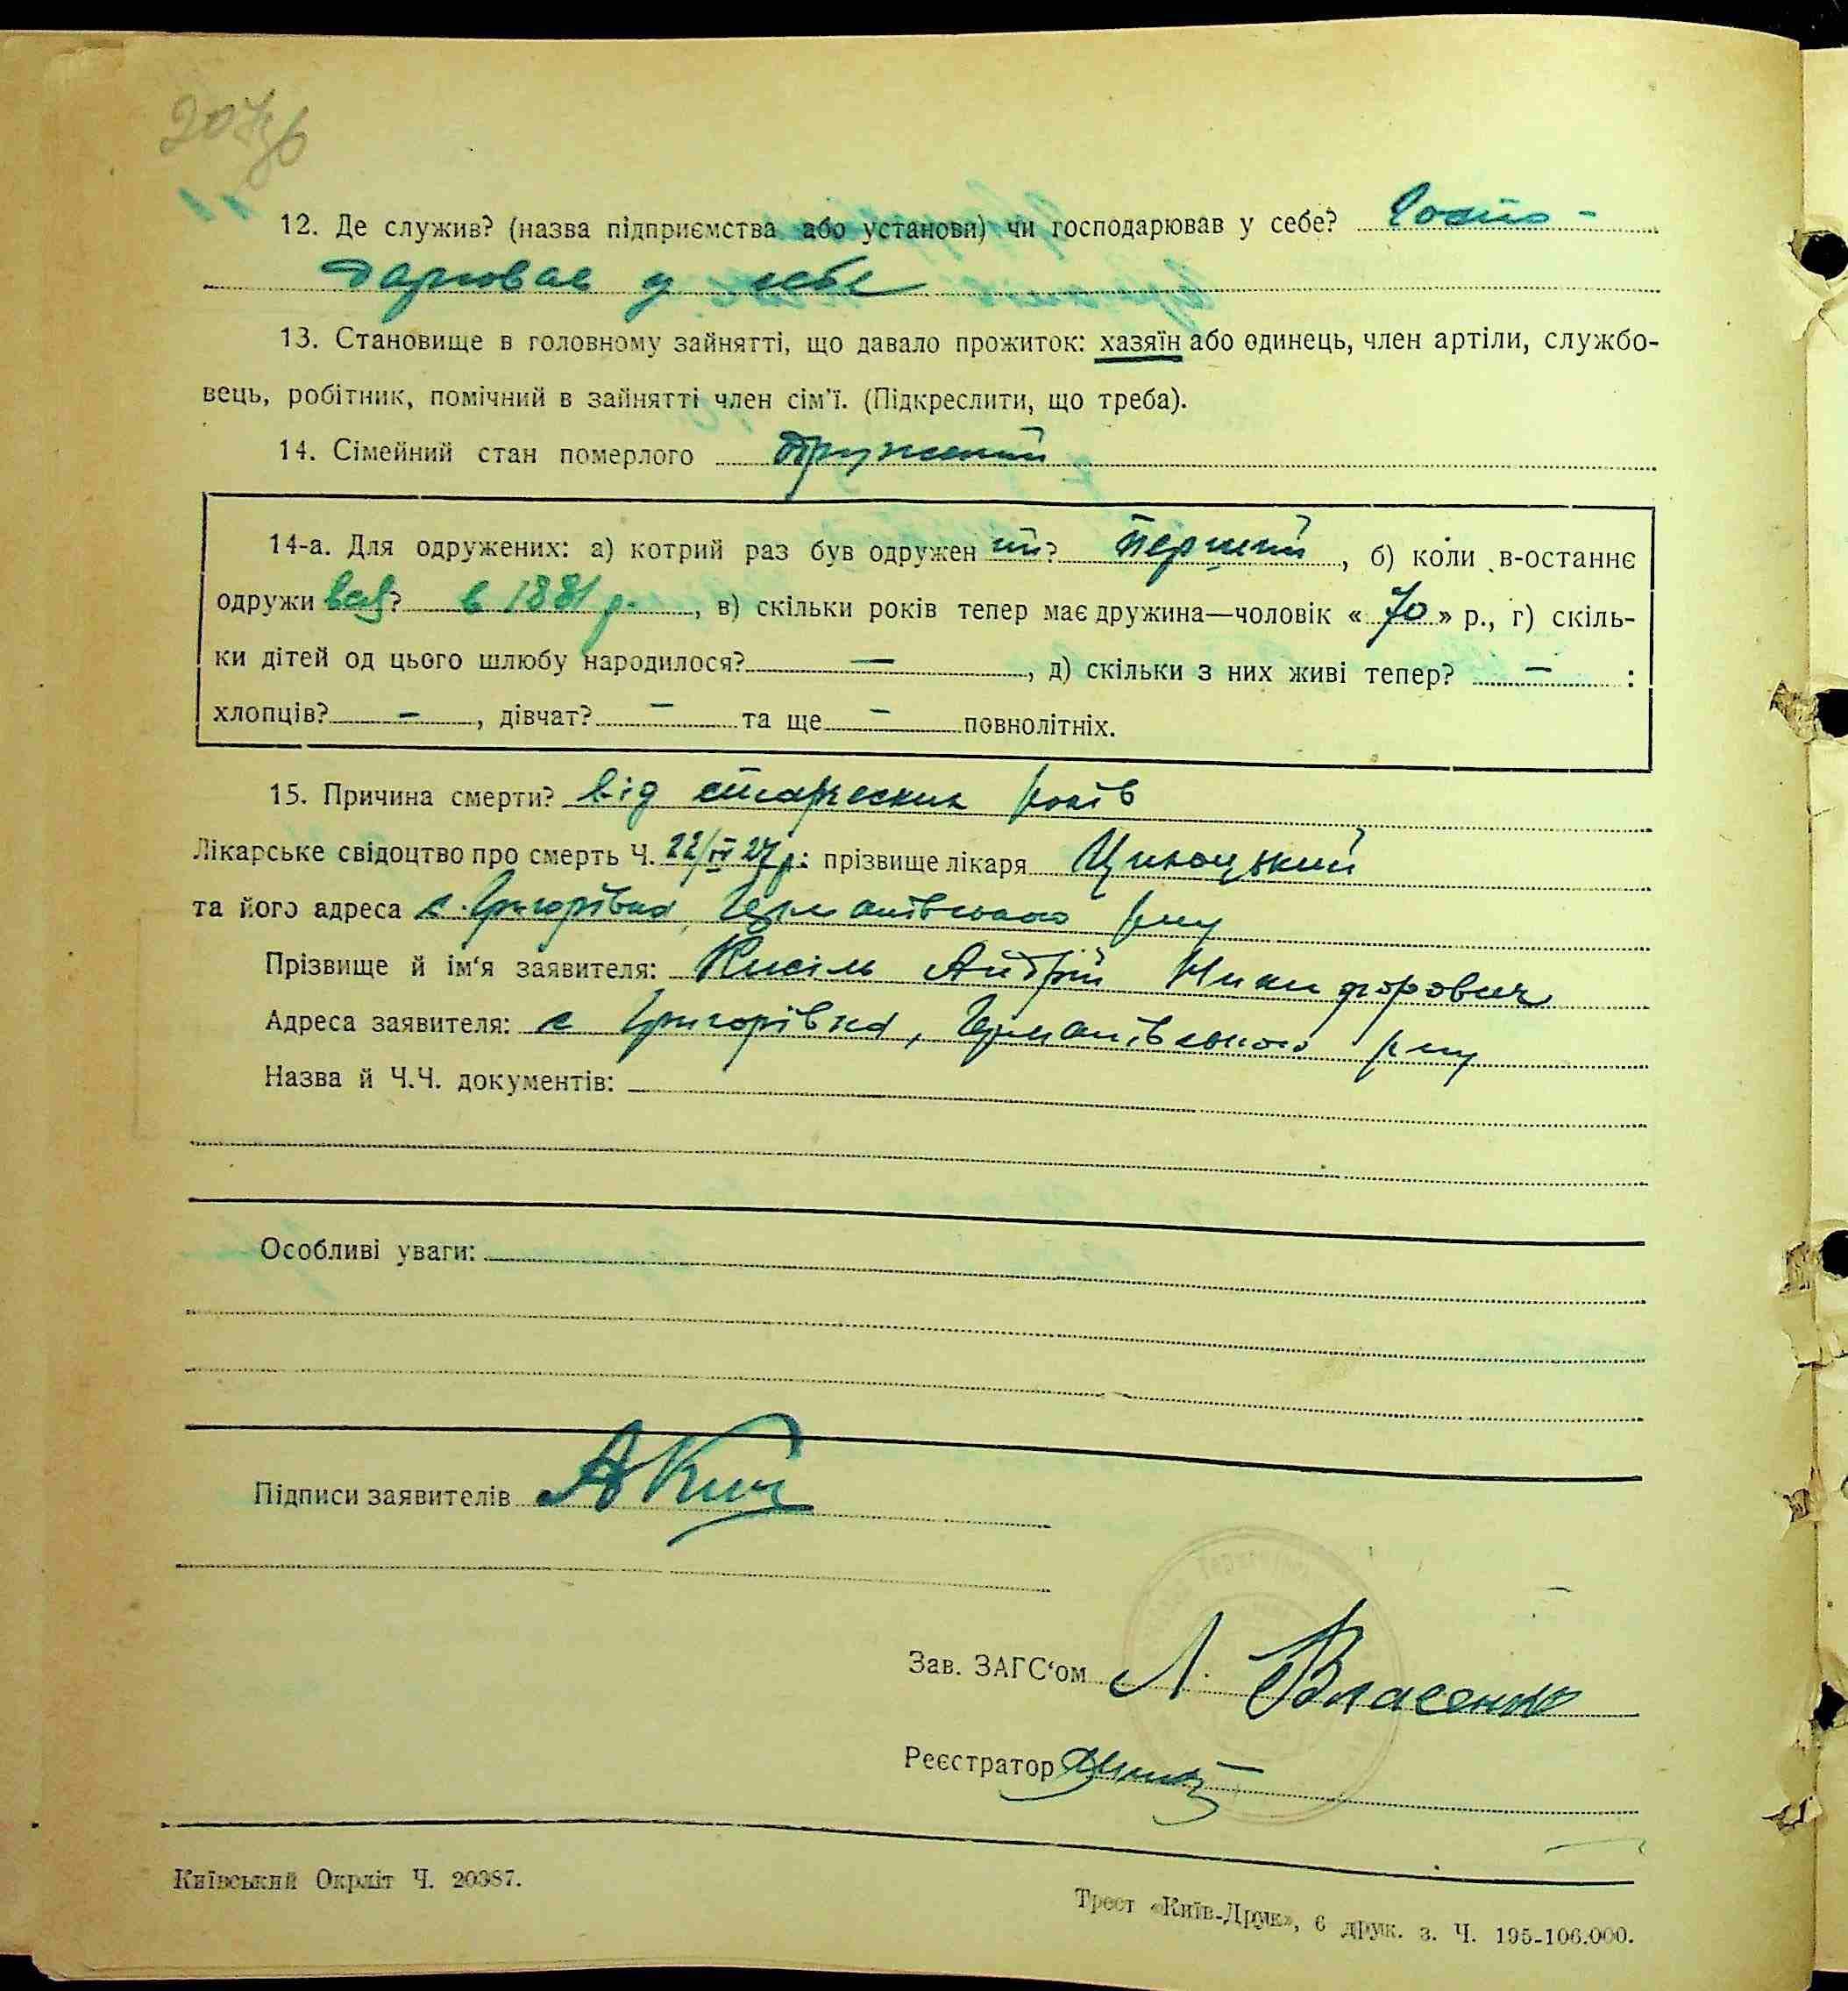 207зв
12. Де служив? (назва підприємства або установи) чи господарював у себе? Госпо-
дарював у себе
13. Становище в головному зайнятті, що давало прожиток: хазяїн або одинець, член артіли, службо-
вець, робітник, помічний в зайнятті член сім'ї. (Підкреслити, що треба).
14. Сімейний стан померлого дружений
14-а. Для одружених: а) котрий раз був одружен ий? перший, б) коли в-останнє
одружи вся? в 1881 р., в) скільки років тепер має дружина—чоловік « 70 » р., г) скіль-
ки дітей од цього шлюбу народилося? —, д) скільки з них живі тепер? — :
хлопців? —, дівчат? — та ще — повнолітніх.
15. Причина смерти? від старческих років
Лікарське свідоцтво про смерть Ч. 22/IV 27 р: прізвище лікаря
та його адреса с. Григорівка, Германівського р-ну
Прізвище й ім'я заявителя: Кисіль Андрій Никифорович
Адреса заявителя: с Григорівка, Германівського р-ну
Назва й Ч.Ч. документів:
Особливі уваги:
Підписи заявителів А Кис
Зав. ЗАГС'ом Л. Власенко
Реєстратор
Київський Окрліт Ч. 20387.
Трест «Київ-Друк», 6 друк. з. Ч. 195-106.000.